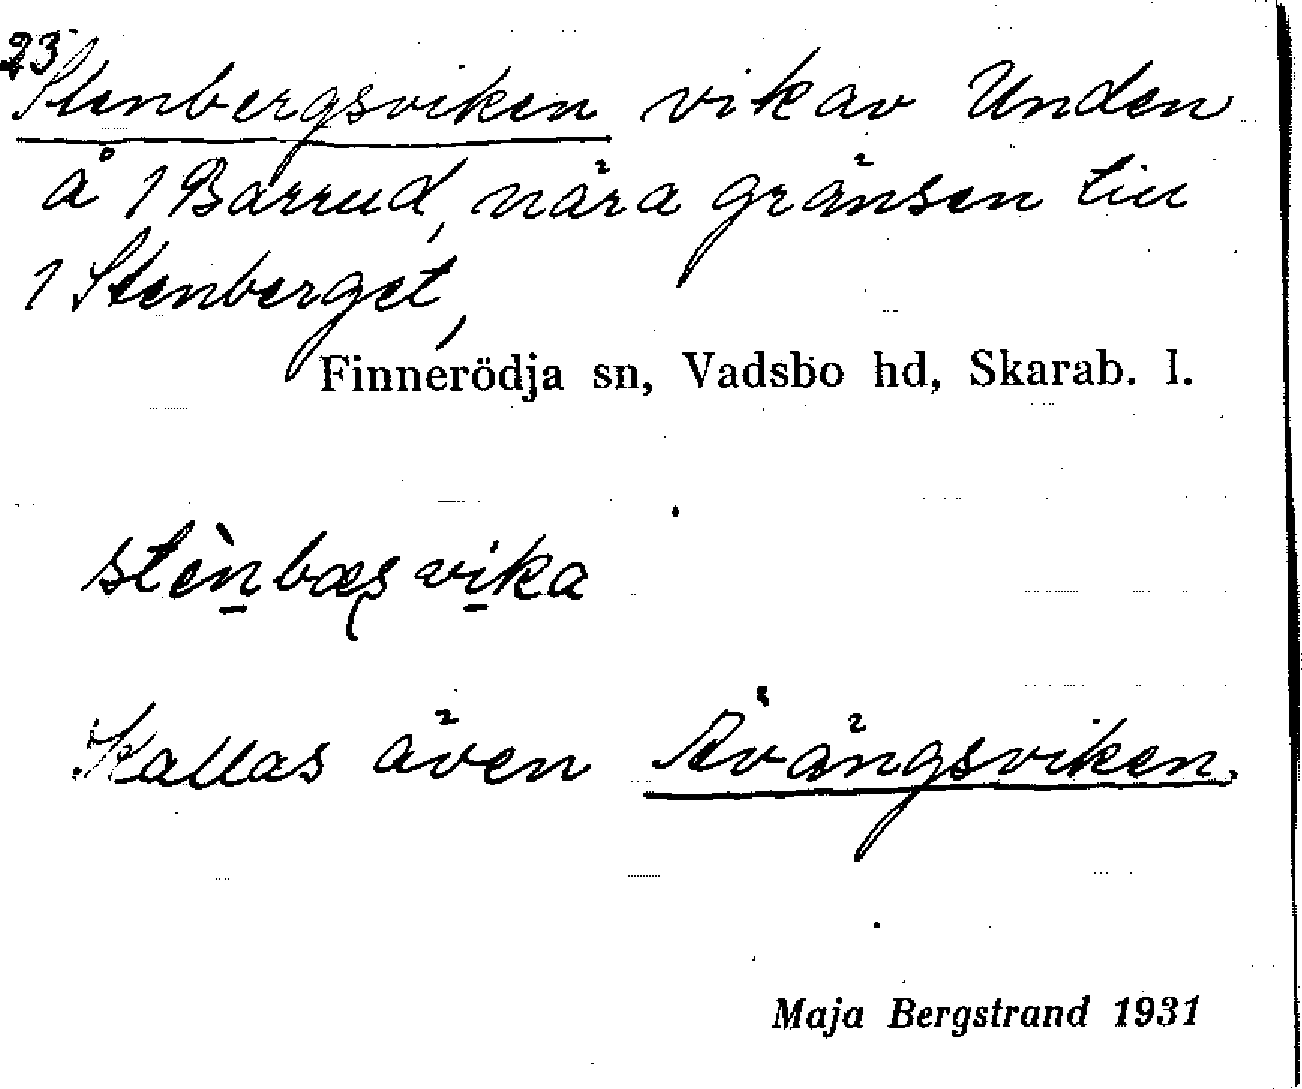 23
Stenbergsviken vik av Unden
å 1 Barrud, nära gränsen till
1 Stenberget,
Finnerödja sn, Vadsbo hd, Skarab. l.
stènbæşvika
Kallas även Åvängsviken.
Maja Bergstrand 1931